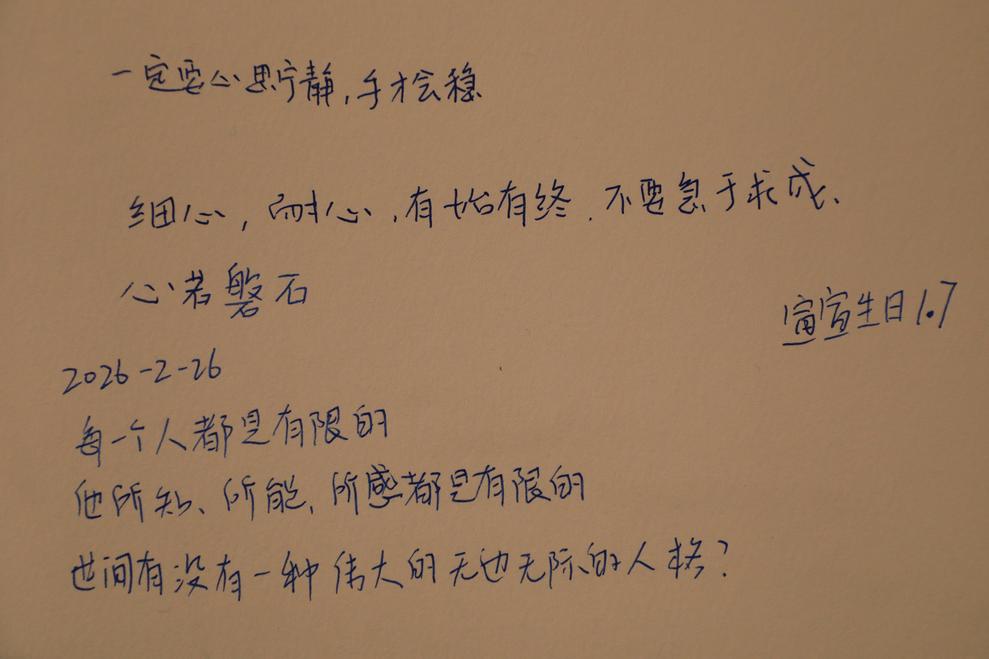 一定要心思宁静，手才会稳
细心，耐心，有始有终．不要急于求成、
心若磐石
宣生日1.7
2026-2-26
每一个人都是有限的
他所知、所能、所感都是有限的
世间有没有一种伟大的无边无际的人格？